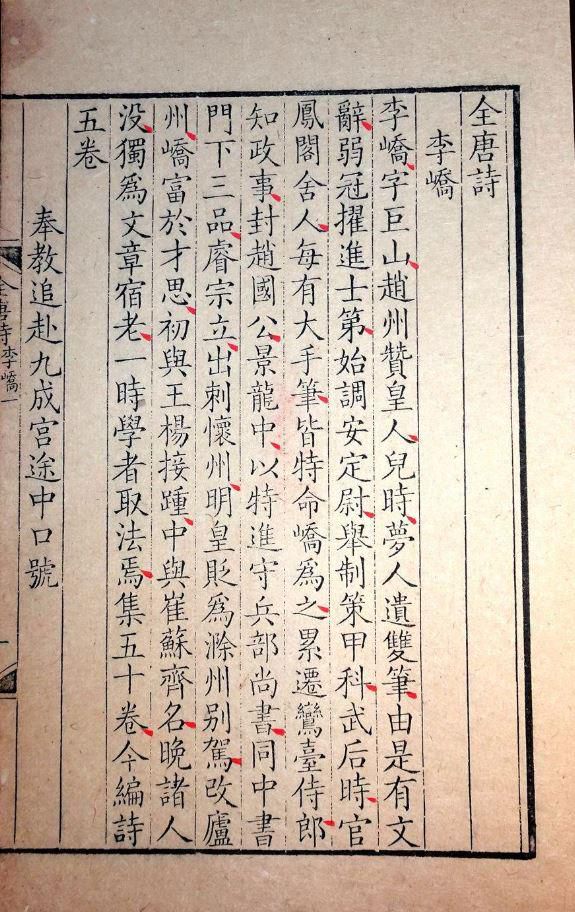 全唐詩
李嶠
李嶠字巨山趙州贊皇人兒時夢人遺雙筆由是有文
辭弱冠擢進士第始調安定尉舉制策甲科武后時官
鳳閣舍人每有大手筆皆特命嶠爲之累遷鸞臺侍郎
知政事封趙國公景龍中以特進守兵部尚書同中書
門下三品睿宗立出刺懷州明皇貶爲滁州别駕改廬
州嶠富於才思初與王楊接踵中與崔蘇齊名晚諸人
没獨爲文章宿老一時學者取法焉集五十卷今編詩
五卷
奉教追赴九成宮途中口號
全唐詩 李嶠一